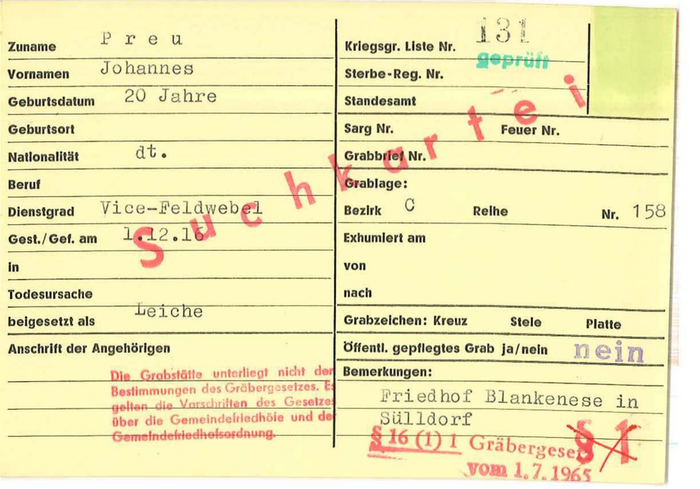 Zuname Preu
Vornamen Johannes
Geburtsdatum 20 Jahre
Geburtsort
Nationalität dt.
Beruf
Dienstgrad Vice-Feldwebel
Gest./Gef. am 1.12.16
in
Todesursache
beigesetzt als Leiche
Anschrift der Angehörigen
Die Grabstätte unterliegt nicht den
Bestimmungen des Gräbergesetzes. Es
gelten die Vorschriften des Gesetzes
über die Gemeindefriedhöfe und der
Gemeindefriedhofsordnung.
Suchkartei
Kriegsgr. Liste Nr. 131
geprüft
Sterbe-Reg. Nr.
Standesamt
Sarg Nr. Feuer Nr.
Grabbrief Nr.
Grablage:
Bezirk C Reihe Nr. 158
Exhumiert am
von
nach
Grabzeichen: Kreuz Stele Platte
Öffentl. gepflegtes Grab ja/nein nein
Bemerkungen:
Friedhof Blankenese in
Sülldorf
§ 16 (1) 1 Gräbergesetz § 1
vom 1.7.1965